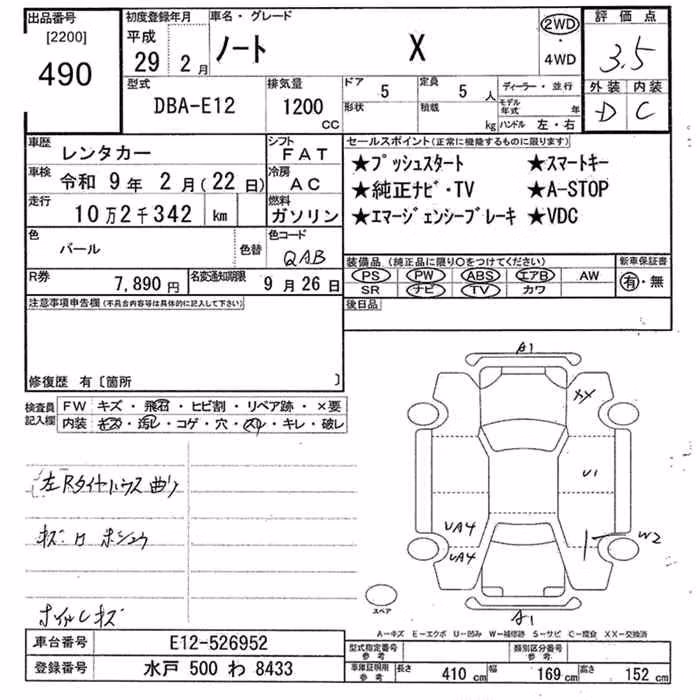 出品番号
[2200]
490
初度登録年月
平成
29 2月
車名・グレード
ノート X
2WD
・
4WD
評価点
3.5
外装 内装
D C
型式
DBA-E12
排気量
1200
CC
ドア
5
形状
定員
5人
積載
kg
ディーラー・並行
モデル年式 年
ハンドル 左・右
車歴 レンタカー
シフト
FAT
車検 令和 9年 2月(22日)
冷房
AC
走行 10万2千342 km
燃料
ガソリン
色
パール
色替
色コード
QAB
R券 7,890円
名変通知期限 9月26日
セールスポイント(正常に機能するものに限ります)
★プッシュスタート ★スマートキー
★純正ナビ・TV ★A-STOP
★エマージェンシーブレーキ ★VDC
装備品(純正品に限り○をつけてください)
PS PW ABS エアB AW
SR ナビ TV カワ
新車保証書
有・無
後日品
注意事項申告欄(不具合内容等は具体的に記入して下さい)
修復歴 有〔箇所 〕
検査員記入欄
FW キズ・飛石・ヒビ割・リペア跡・×要
内装 キズ・汚レ・コゲ・穴・スレ・キレ・破レ
左Rタイヤハウス曲り
キズ
ホイルキズ
A1
XX
U1
UA4
UA4
W2
A1
スペア
A−キズ E−エクボ U−凹み W−補修跡 S−サビ C−腐食 XX−交換済
車台番号 E12-526952
登録番号 水戸 500 わ 8433
型式指定番号
参考
類別区分番号
参考
車庫証明用
参考
長さ 410 cm 幅 169 cm 高さ 152 cm